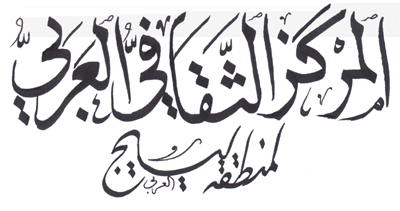 المركز الثقافي العربي
لمنطقة لييج
العربي